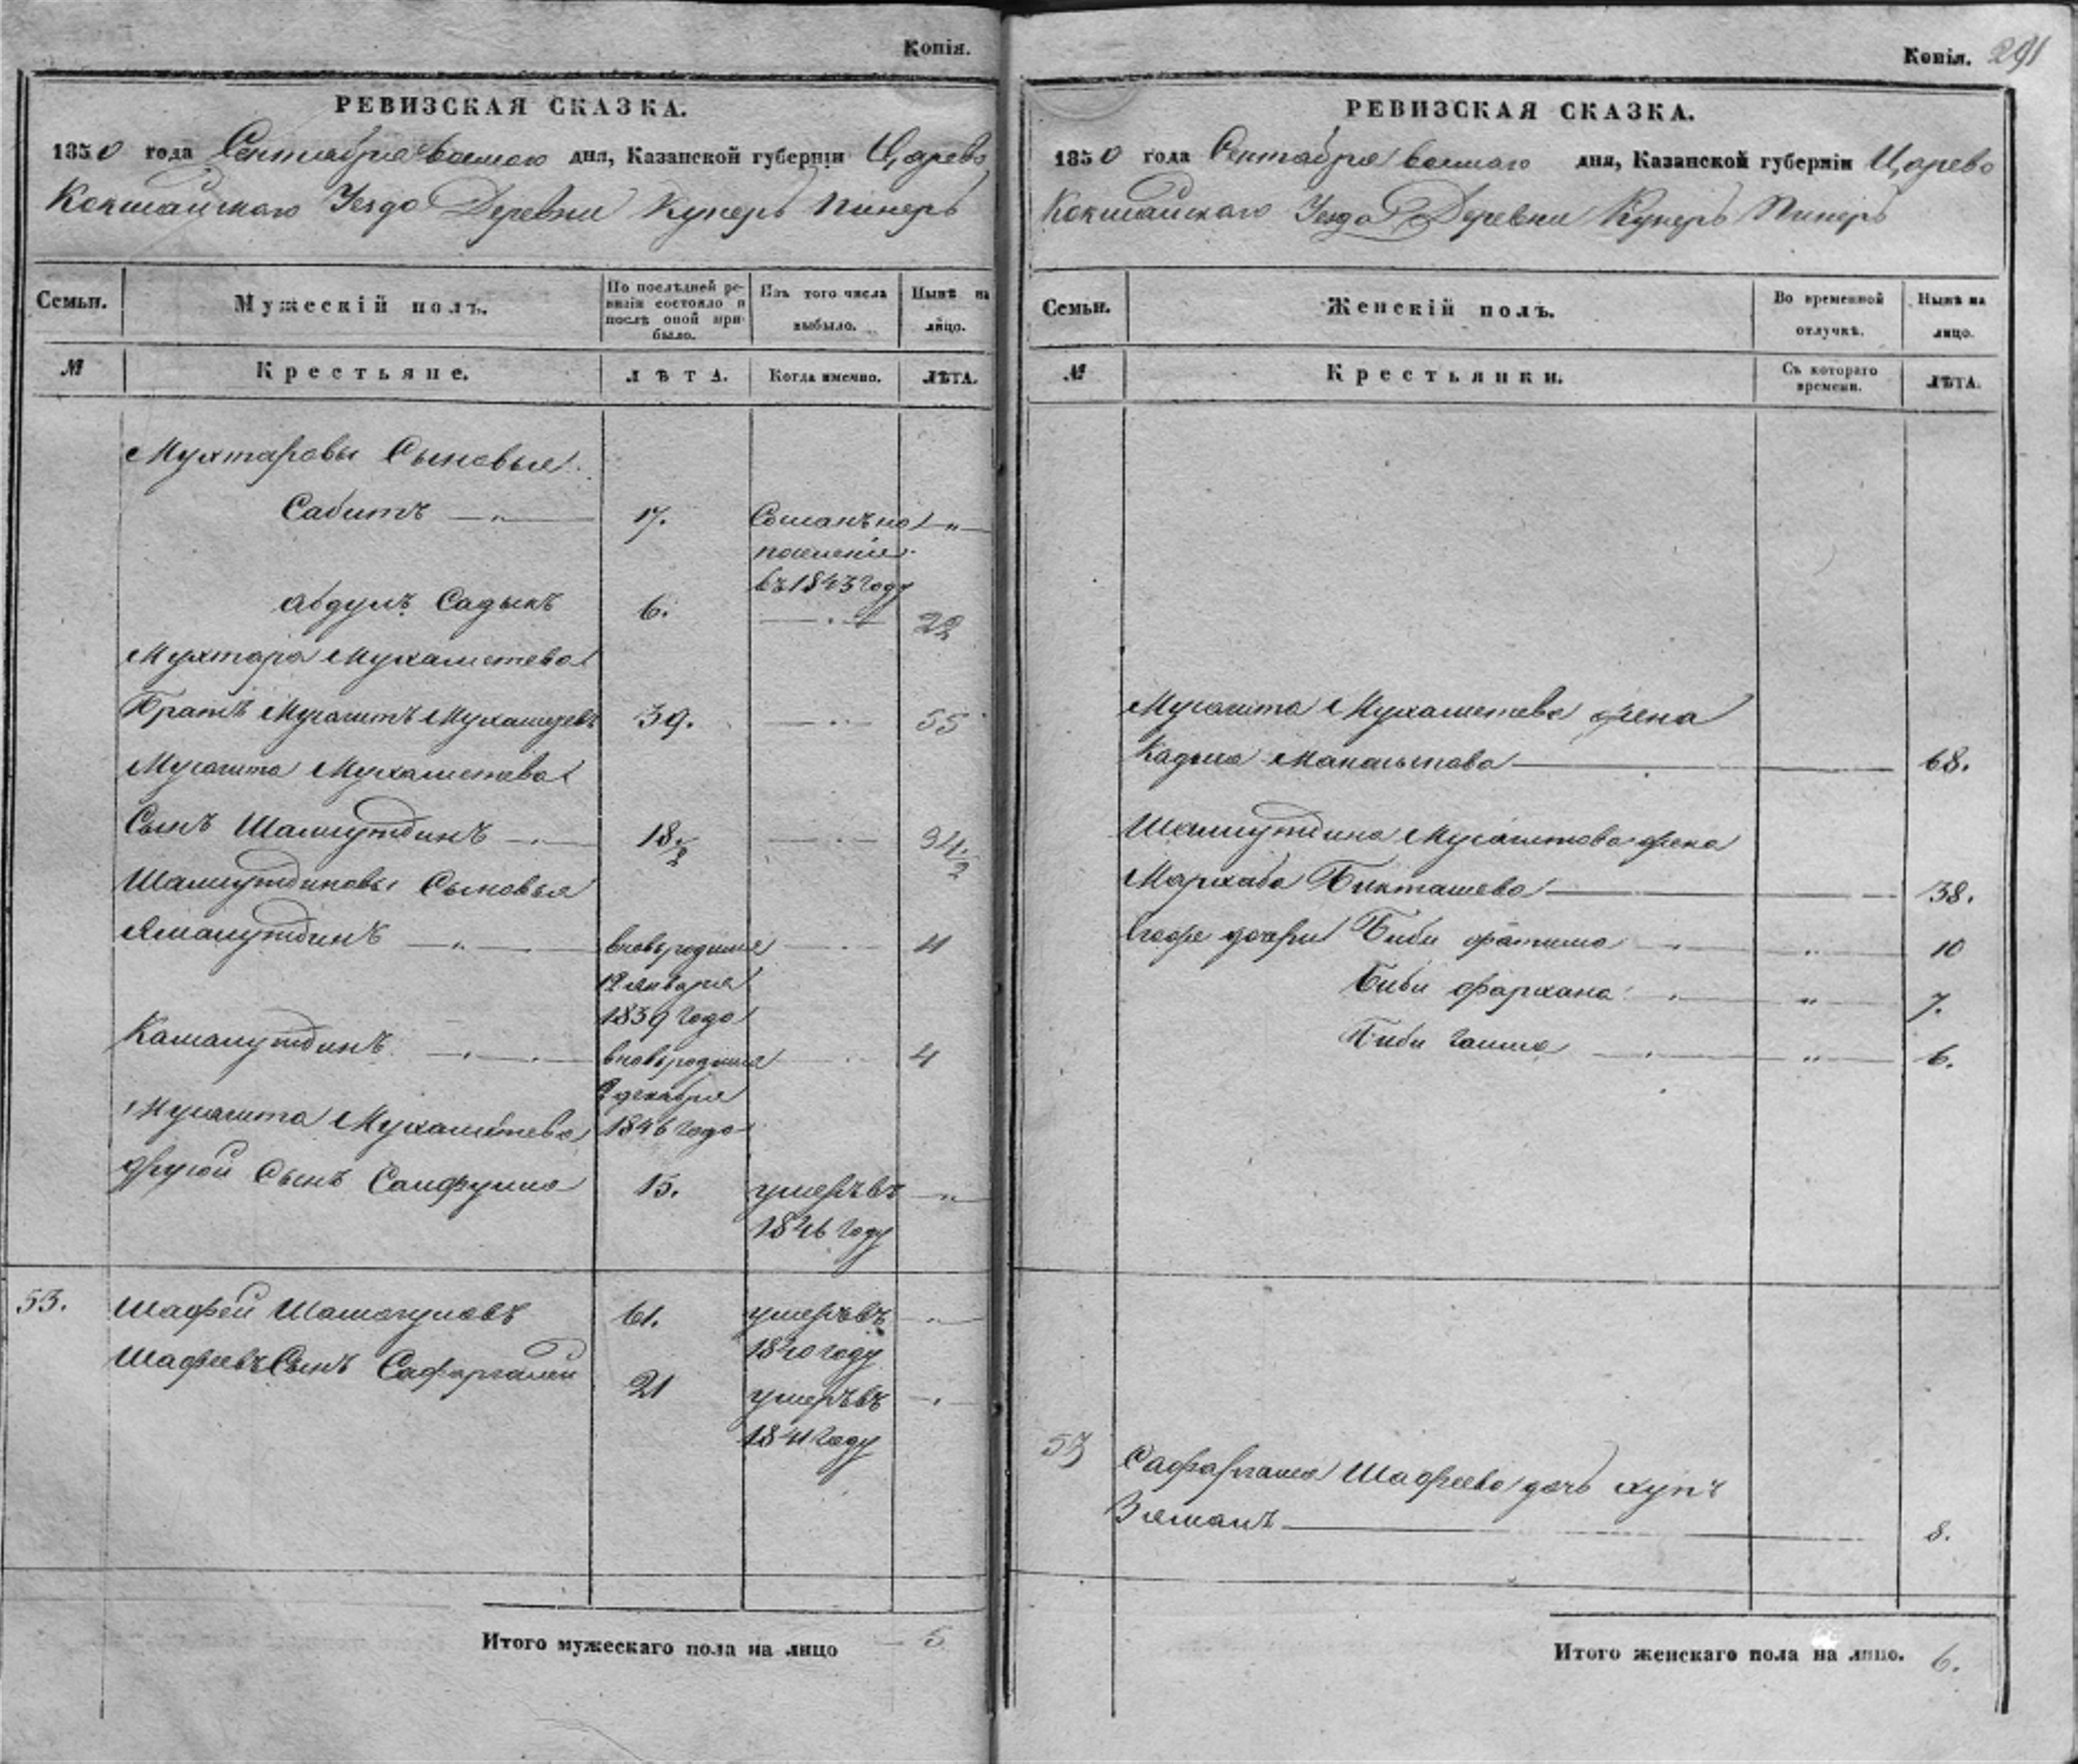 Копія.
РЕВИЗСКАЯ СКАЗКА.
1850 года Сентября восьмаго дня, Казанской губерніи Царево
Кокшайскаго Уезда Деревни Куперъ Пинеръ
Семьи.
Мужескій полъ.
По послѣдней ре-
визіи состояло и
послѣ оной при-
было.
Изъ того числа
выбыло.
Нынѣ на
лицо.
№
Крестьяне.
ЛѢТА.
Когда именно.
ЛѢТА.
Мухтаровы Сыновья
Сабитъ — " — 17. Сосланъ на — " —
поселение
въ 1843 году
Абдулъ Садыкъ 6. — " — 22
Мухтара Мухаметева
Братъ Мусагитъ Мухаметевъ 39. — " — 55
Мусагита Мухаметева
Сынъ Шамсутдинъ — " — 18 1/2 — " — 34 1/2
Шамсутдиновы Сыновья
Ямалутдинъ — " — вновьродился — " — 11
12 января
1839 года
Камалутдинъ — " — вновьродился — " — 4
2 декабря
1846 года
Мусагита Мухаметева
другой Сынъ Сайфулла 15. умеръ въ — " —
1846 году
53. Шафей Шамагуловъ 61. умеръ въ — " —
1840 году
Шафеевъ Сынъ Сафаргалей 21 умеръ въ — " —
1841 году
Итого мужескаго пола на лицо — 5
Копія. 291
РЕВИЗСКАЯ СКАЗКА.
1850 года Сентября восьмаго дня, Казанской губерніи Царево
Кокшайскаго Уезда Деревни Куперъ Пинеръ
Семьи.
Женскій полъ.
Во временной
отлучкѣ.
Нынѣ на
лицо.
№
Крестьянки.
Съ котораго
времени.
ЛѢТА.
Мусагита Мухаметева жена
Кадыша 68.
Шамсутдина Мусагитова жена
Мархаба Бикташева 38.
дочери Биби фатима — " — 10
Биби фархана — " — 7.
Биби гаиша — " — 6.
53 Сафаргалея Шафеева дочь хупъ
Зяманъ 8.
Итого женскаго пола на лицо. 6.